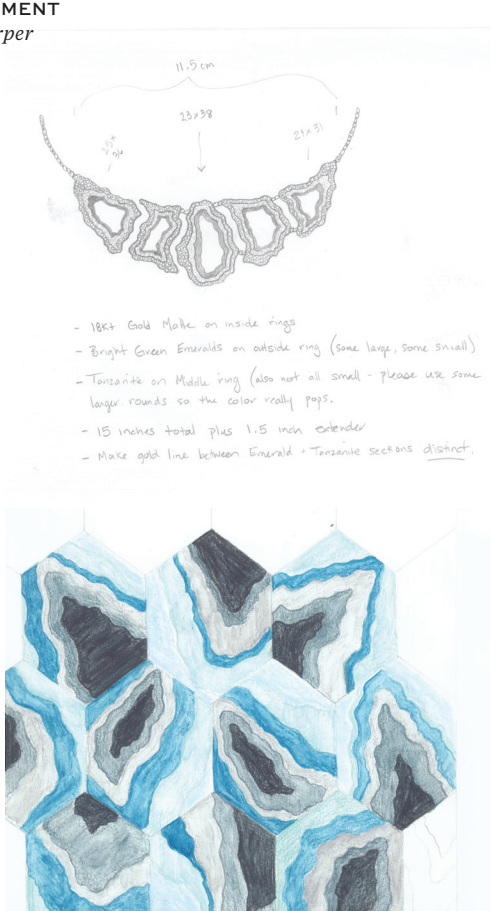 MENT
rper
11.5 cm
23x38
21x31
- 18Kt Gold Matte on inside rings
- Bright Green Emeralds on outside ring (some large, some small)
- Tanzanite on Middle ring (also not all small - please use some
larger rounds so the color really pops.
- 15 inches total plus 1.5 inch extender
- Make gold line between Emerald + Tanzanite sections distinct.